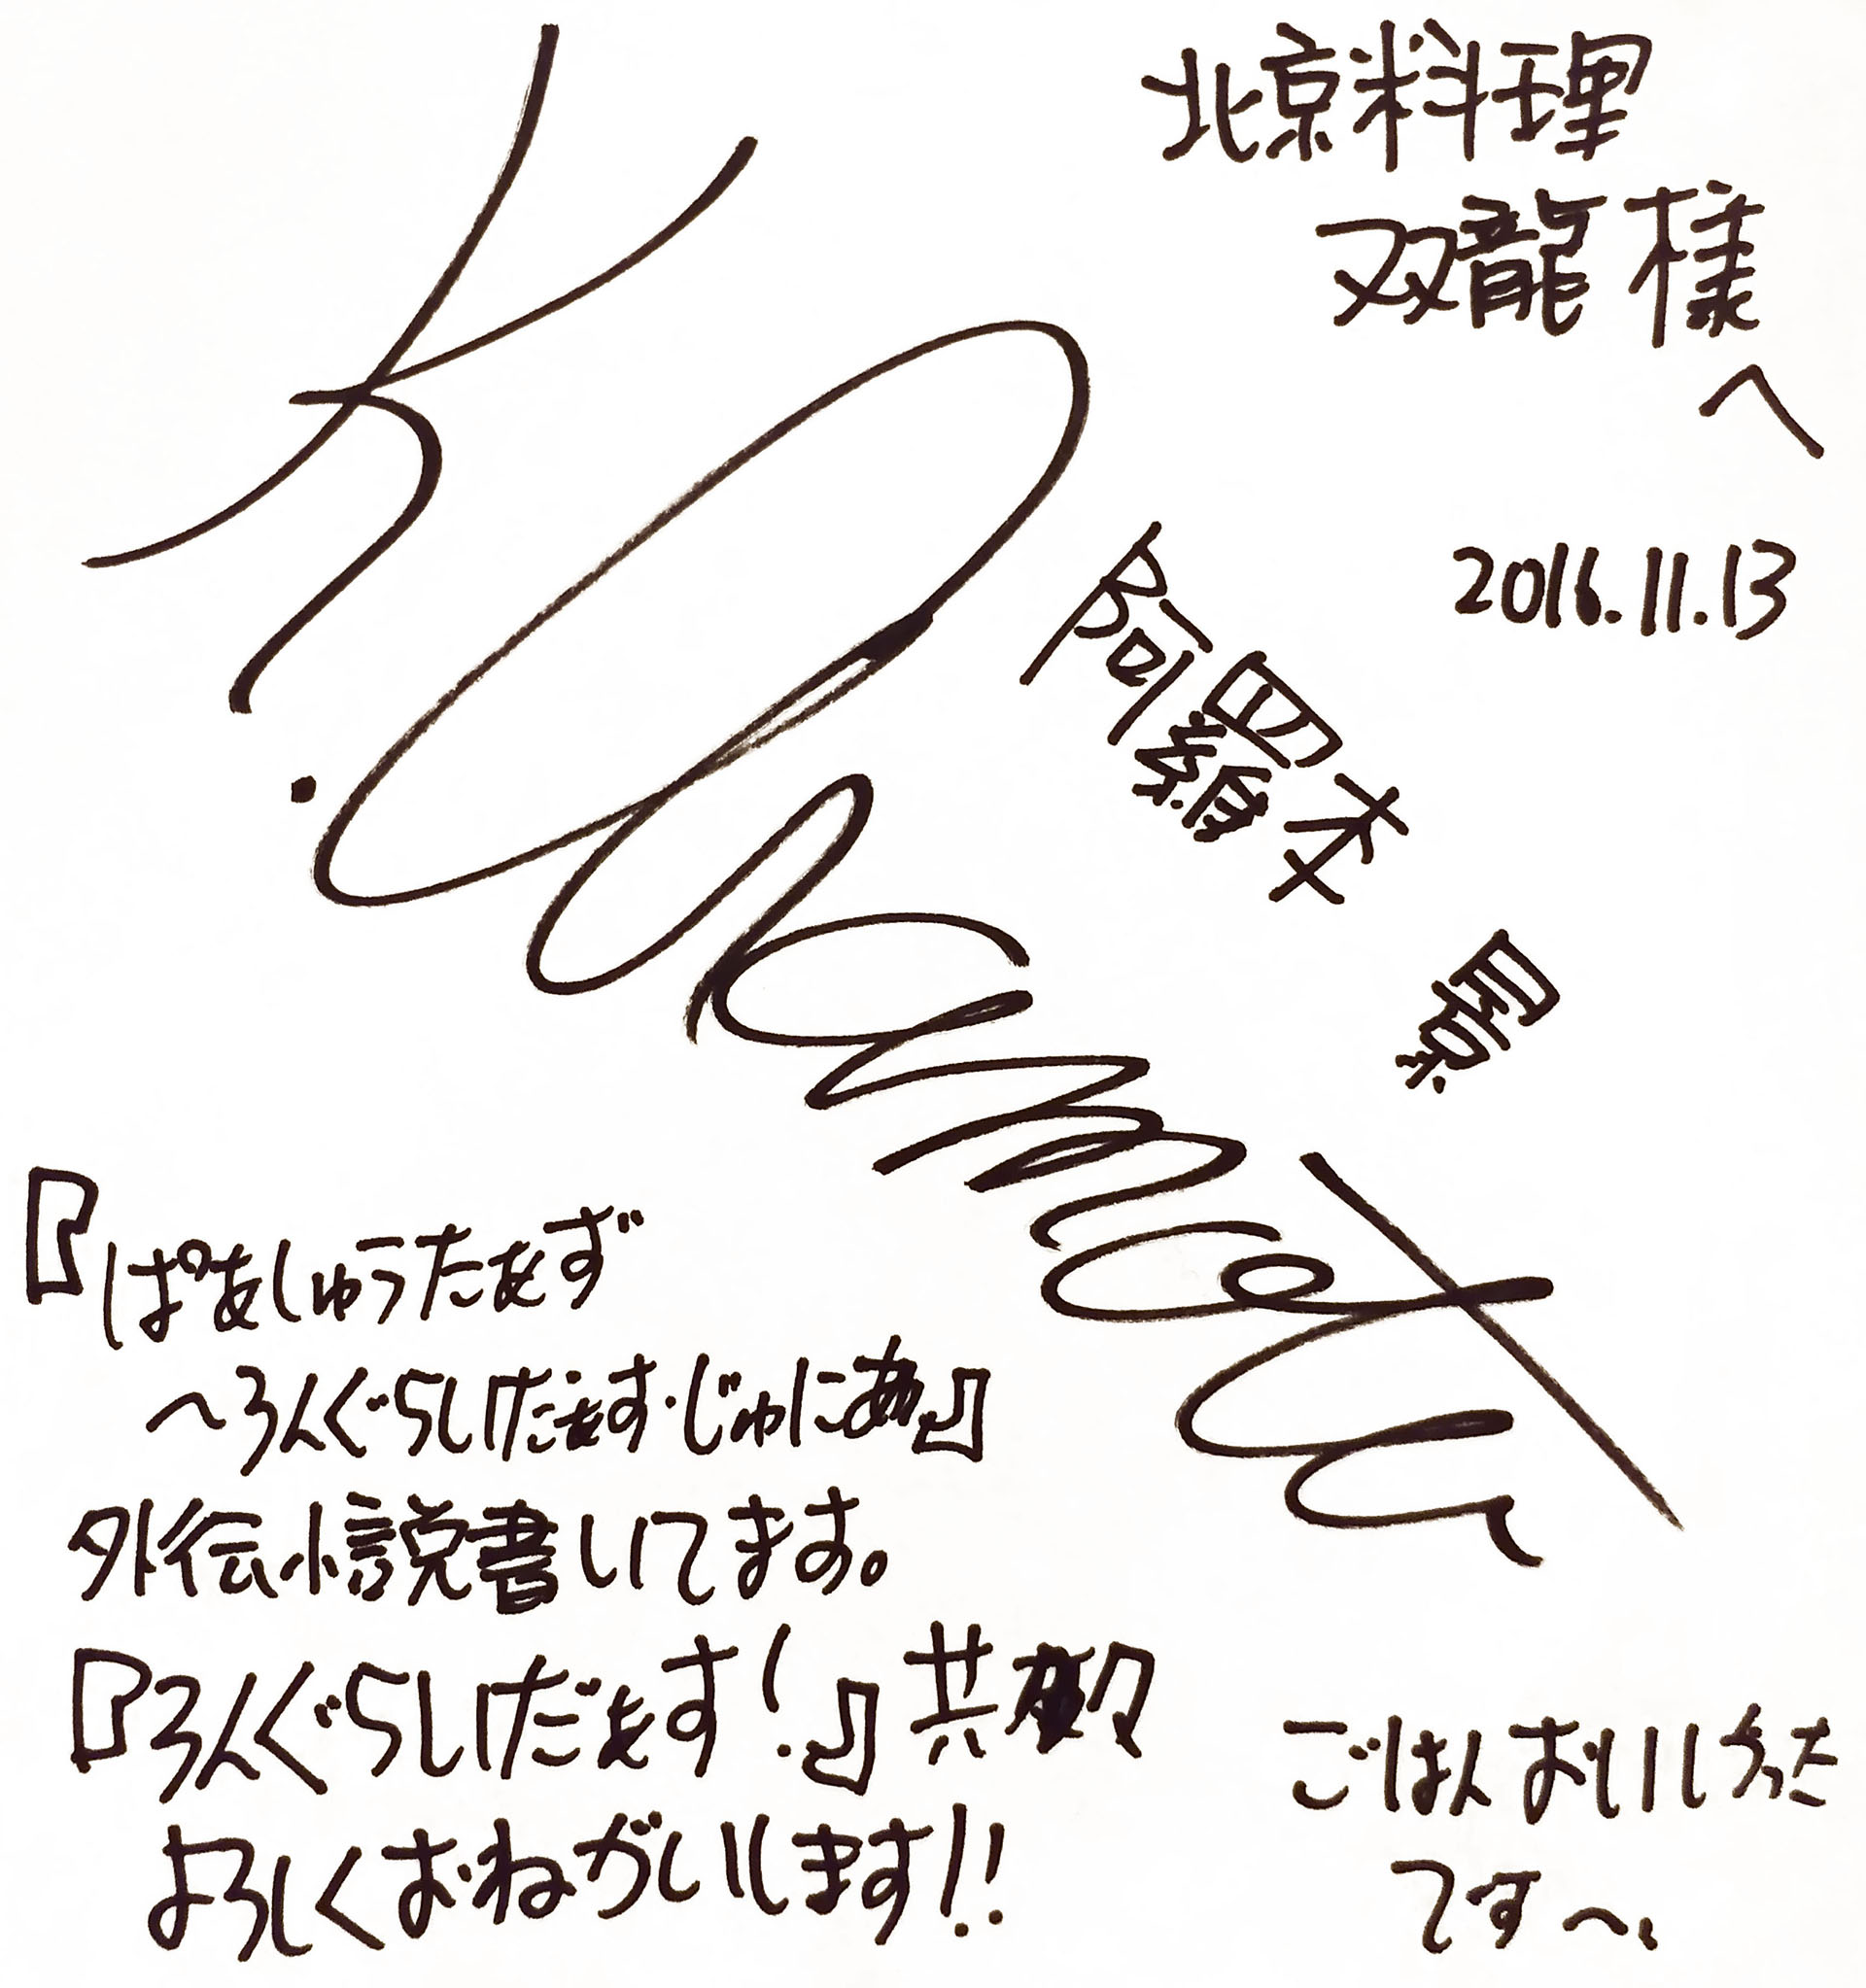 北京料理
双龍 様
へ
2016.11.13
阿羅本 景
『ぱあしゅうたぁず
〜ろんぐらいだぁす・じゅにあ』
外伝小説書いてます。
『ろんぐらいだぁす!』共々
よろしくおねがいします!!
ごはんおいしかった
です〜、